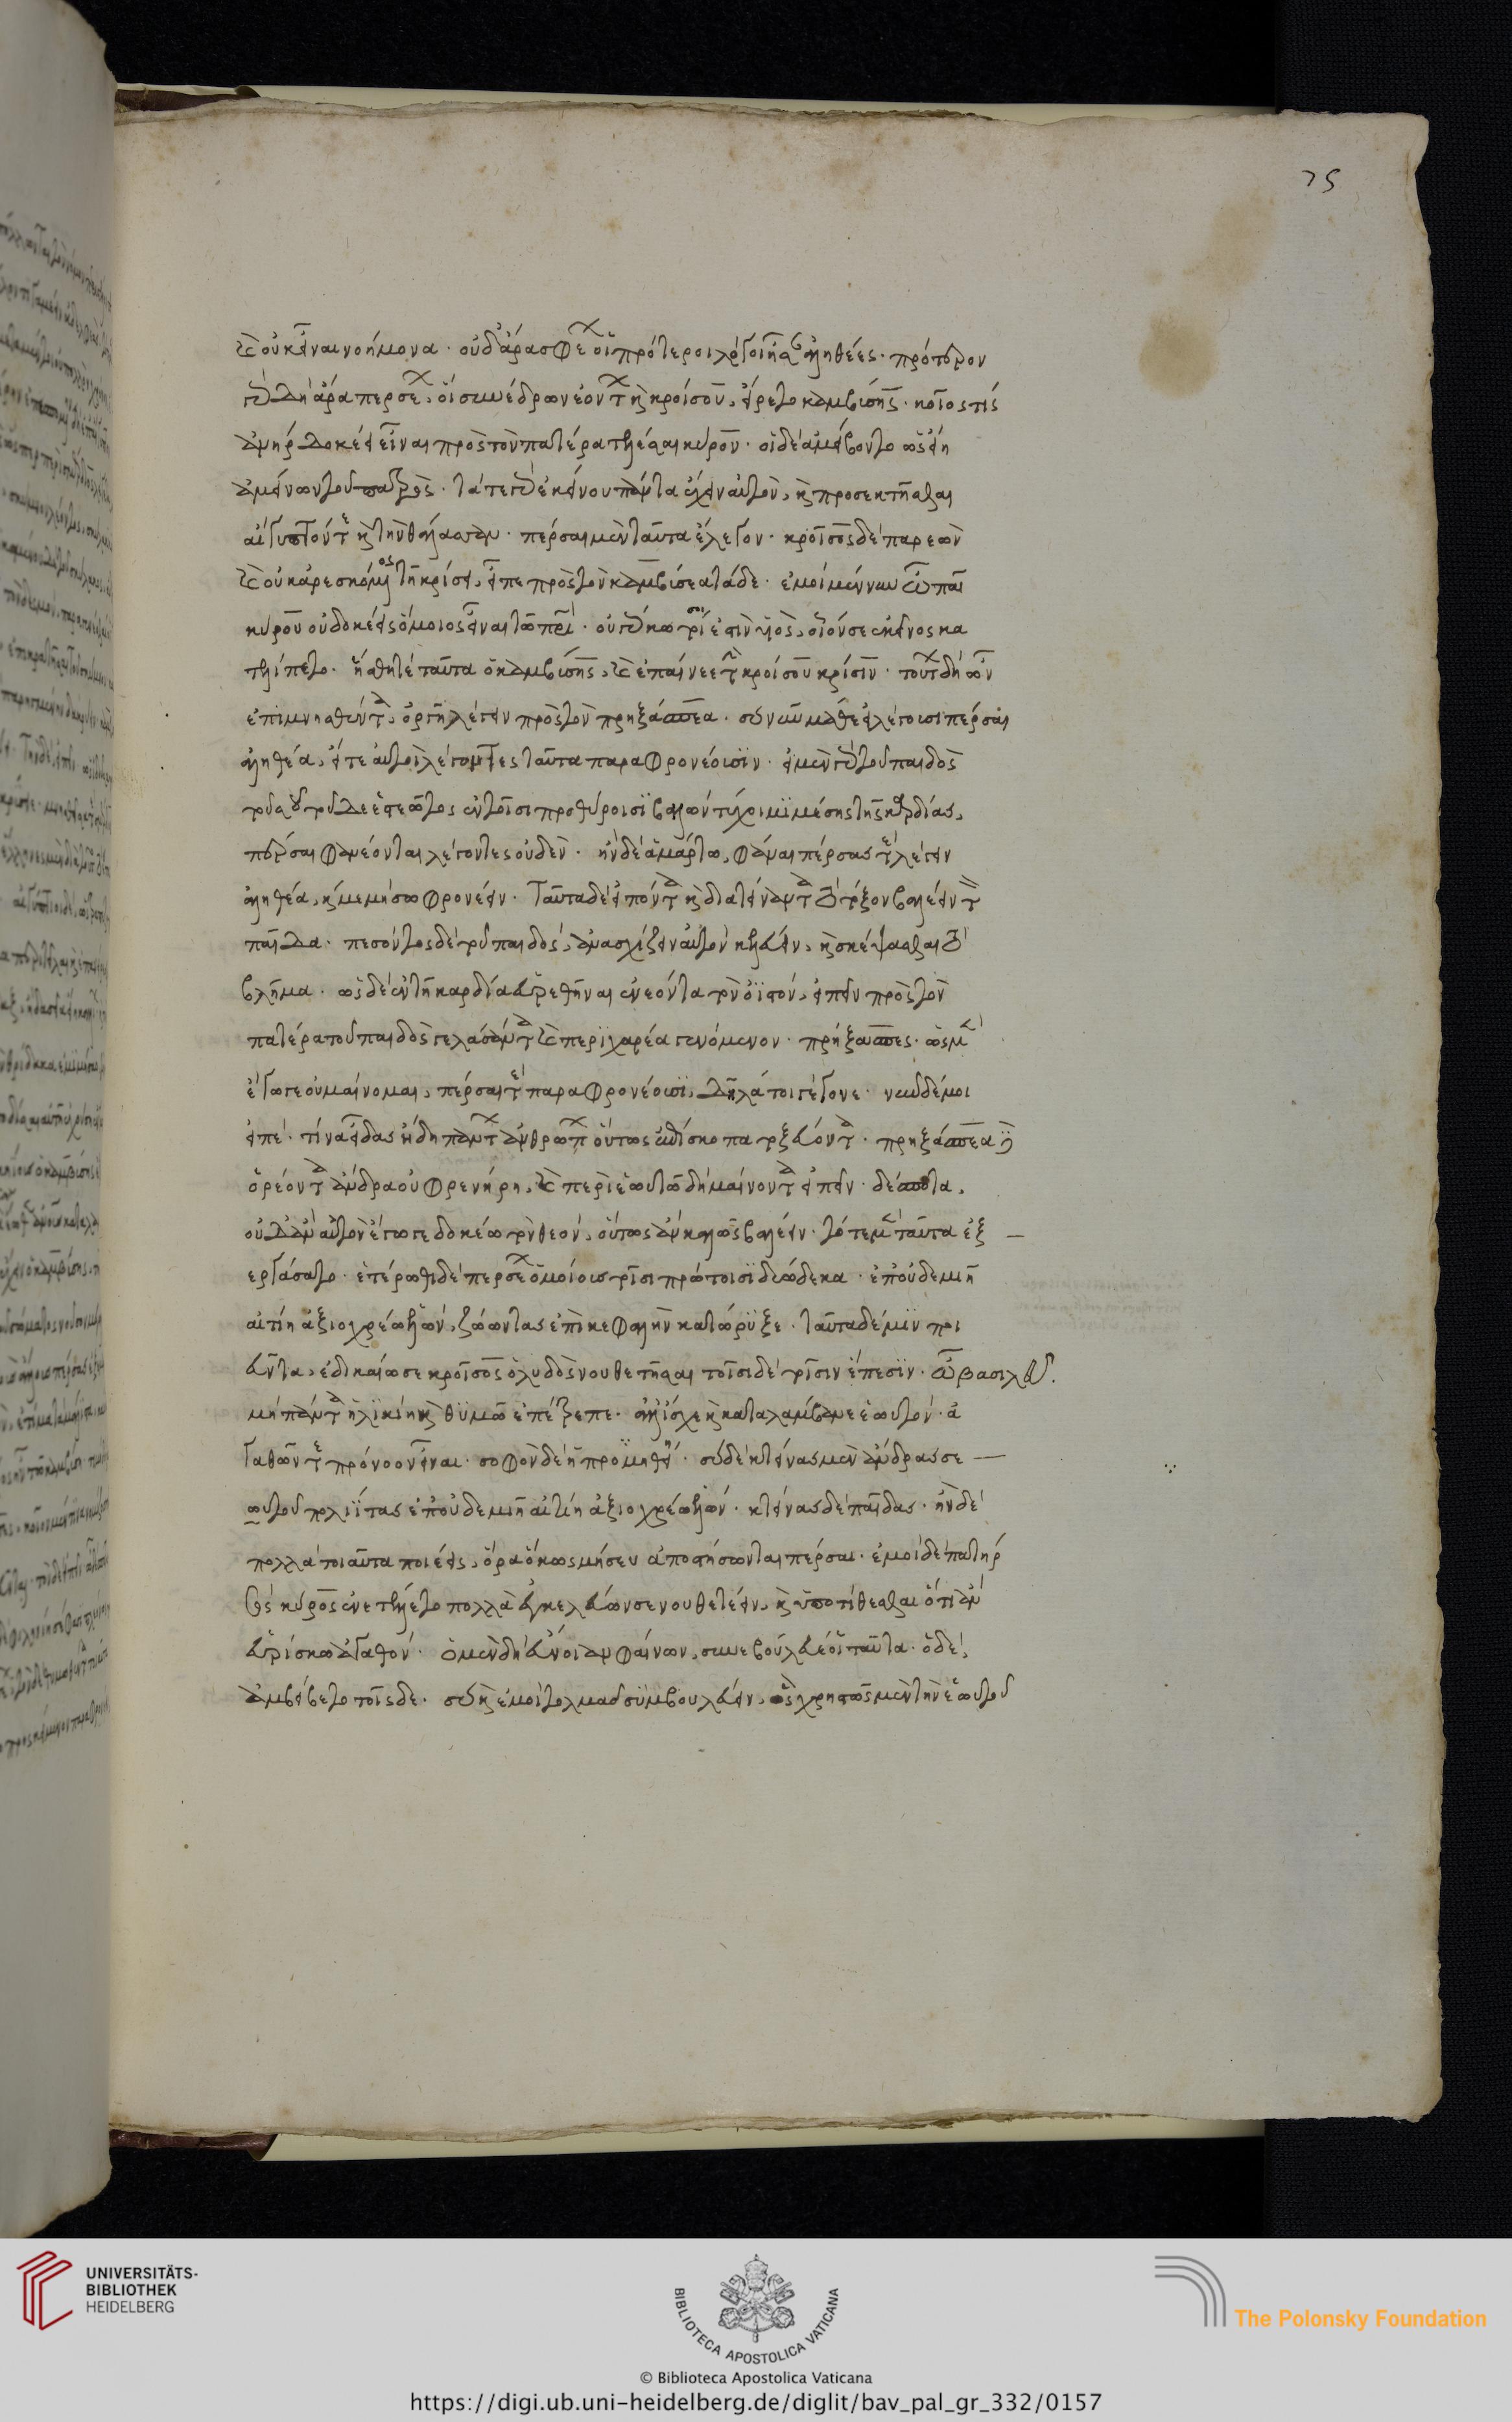 75
καὶ οὐκ εἶναι νοήμονα· οὐδ' ἄρα σφέων οἱ πρότεροι λόγοι ἦσαν ἀληθέες· πρότερον
γὰρ δὴ ἄρα περσέων οἱ συνέδρων ἐόντων καὶ κροίσου, εἴρετο καμβύσης· κοῖός τις
ἀνὴρ δοκέει εἶναι πρὸς τὸν πατέρα τελέσαι κῦρον· οἱ δὲ ἀμείβοντο ὡς εἴη
ἀμείνων τοῦ πατρός· τά τε γὰρ ἐκείνου πάντα ἔχειν αὐτὸν, καὶ προσεκτῆσθαι
αἴγυπτόν τε καὶ τὴν θάλασσαν· πέρσαι μὲν ταῦτα ἔλεγον· κροῖσος δὲ παρεὼν
καὶ οὐκ ἀρεσκόμενος τῇ κρίσει, εἶπε πρὸς τὸν καμβύσεα τάδε· ἐμοὶ μέν νυν ὦ παῖ
κύρου οὐ δοκέεις ὅμοιος εἶναι τῶ πατρί· οὐ γάρ κώ τοί ἐστιν υἱὸς, οἷόν σε ἐκεῖνος κα
τελίπετο· ἥσθη τε ταῦτα ὁ καμβύσης, καὶ ἐπαίνεε τὴν κροίσου κρίσιν· τούτων δὴ ὦν
ἐπιμνησθέντα, ὀργῆ λέγειν πρὸς τὸν πρηξάσπεα· σύ νυν μάθε εἰ λέγουσι πέρσαι
ἀληθέα, εἴτε αὐτοὶ λέγοντες ταῦτα παραφρονέουσιν· εἰ μὲν γὰρ τοῦ παιδὸς
τοῦ σοῦ τοῦδε ἑστεῶτος ἐν τοῖσι προθύροισι βαλὼν τύχοιμι μέσης τῆς καρδίας,
πέρσαι φανέονται λέγοντες οὐδέν· ἢν δὲ ἁμάρτω, φάναι πέρσας τε λέγειν
ἀληθέα, καί με μὴ σωφρονέειν· ταῦτα δὲ εἰπόντα καὶ διατείναντα τὸ τόξον βαλέειν τὸν
παῖδα· πεσόντος δὲ τοῦ παιδὸς, ἀνασχίζειν αὐτὸν κελεύειν, καὶ σκέψασθαι τὸ
βλῆμα· ὡς δὲ ἐν τῆ καρδία εὑρεθῆναι ἐνεόντα τὸν ὀϊστὸν, εἰπεῖν πρὸς τὸν
πατέρα τοῦ παιδὸς γελάσαντα καὶ περιχαρέα γενόμενον· πρήξασπες· ὡς μὲν
ἔγωγε οὐ μαίνομαι, πέρσαι τε παραφρονέουσι, δῆλά τοι γέγονε· νῦν δέ μοι
εἰπέ· τίνα εἶδας ἤδη πάντων ἀνθρώπων οὕτως ἐπίσκοπα τοξεύοντα· πρηξάσπεα δὲ
ὁρέοντα ἄνδρα οὐ φρενήρη, καὶ περὶ ἑωυτῶ δημαίνοντα εἰπεῖν· δέσποτα,
οὐδ' ἂν αὐτὸν ἔγωγε δοκέω τὸν θεὸν, οὕτως ἂν καλῶς βαλέειν· τότε μὲν ταῦτα ἐξ
εργάσατο· ἑτέρωθι δὲ περσέων ὁμοίους τοῖσι πρώτοισι δυώδεκα· ἐπ' οὐδεμιῆ
αἰτίη ἀξιοχρέω ἑλὼν, ζώωντας ἐπὶ κεφαλὴν κατώρυξε· ταῦτα δέ μιν ποι
εῦντα, ἐδικαίωσε κροῖσος ὁ λυδὸς νουθετῆσαι τοῖσιδε τοῖσιν ἔπεσιν· ὦ βασιλεῦ.
μὴ πάντα ἡλικίη καὶ θυμῶ ἐπέτρεπε· ἀλλ' ἴσχε καὶ καταλάμβανε ἑωυτόν· ἀ
γαθόν τε πρόνοον εἶναι· σοφὸν δὲ ἡ προμηθείη· σὺ δὲ κτείνας μὲν ἄνδρας σε
ωυτοῦ πολιήτας ἐπ' οὐδεμιῆ αἰτίη ἀξιοχρέω ἑλών· κτείνας δὲ παῖδας· ἢν δὲ
πολλὰ τοιαῦτα ποιέεις, ὅρα ὅκως μή σευ ἀποστήσωνται πέρσαι· ἐμοὶ δὲ πατὴρ
σὸς κῦρος ἐνετέλλετο πολλὰ κελεύων σε νουθετέειν, καὶ ὑποτίθεσθαι ὅτι ἂν
εὑρίσκω ἀγαθόν· ὁ μὲν δὴ εὔνοιαν φαίνων, συνεβούλευέ οἱ ταῦτα· ὁ δὲ
ἀμείβετο τοῖσδε· σὺ καὶ ἐμοὶ τολμᾶς συμβουλεύειν, ὃς χρηστῶς μὲν τὴν ἑωυτοῦ
UNIVERSITÄTS-
BIBLIOTHEK
HEIDELBERG
BIBLIOTECA APOSTOLICA VATICANA
The Polonsky Foundation
© Biblioteca Apostolica Vaticana
https://digi.ub.uni-heidelberg.de/diglit/bav_pal_gr_332/0157